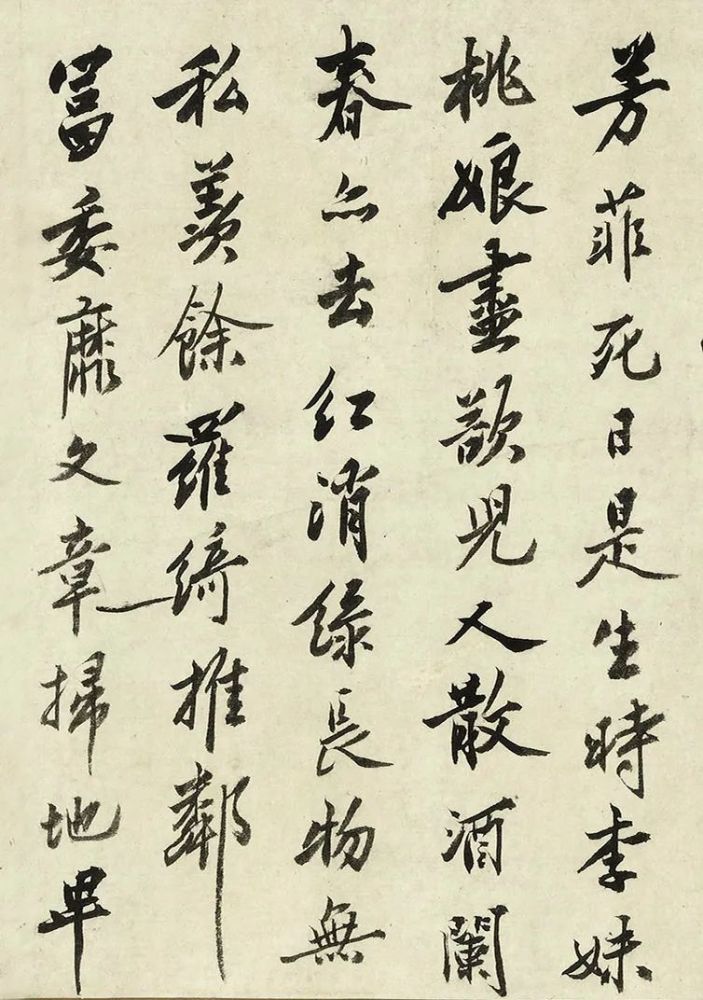 芳菲死日是生時李妹
桃娘盡歆兒人散酒闌
春亦去紅消綠長物無
私羨餘羅綺推鄰
富委靡文章掃地卑